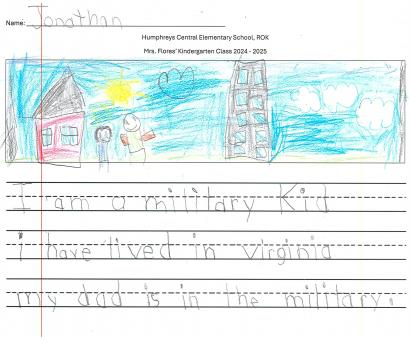 Name: Jonathan
Humphreys Central Elementary School, ROK
Mrs. Flores' Kindergarten Class 2024 - 2025
I am a military Kid
I have lived in virginia
my dad is in the military.